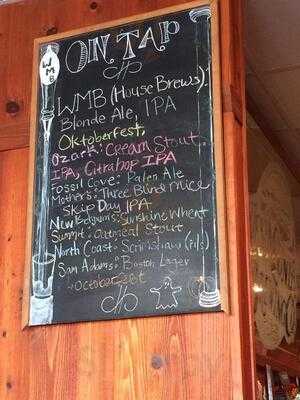 WMB
ON TAP
WMB (House Brews):
Blonde Ale, IPA
Oktoberfest,
Ozark: Cream Stout
IPA, Citrahop IPA
Fossil Cove: Palen Ale
Mothers: Three Blind Mice
Skip Day IPA
New Belgium: Sunshine Wheat
Summit: Oatmeal Stout
North Coast: Scrimshaw (Pils)
Sam Adams: Boston Lager
October fest